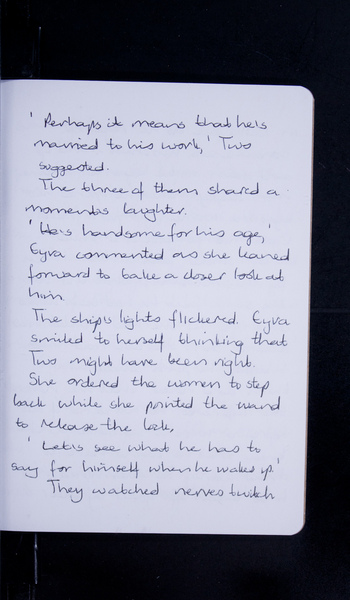 ' Perhaps it means that he's
married to his work,' Two
suggested.
The three of them shared a
moment's laughter.
' He's handsome for his age,'
Eyra commented as she leaned
forward to take a closer look at
him.
The ship's lights flickered. Eyra
smiled to herself thinking that
Two might have been right.
She ordered the women to step
back while she pointed the wand
to release the lock.
' Let's see what he has to
say for himself when he wakes up.'
They watched nerves twitch